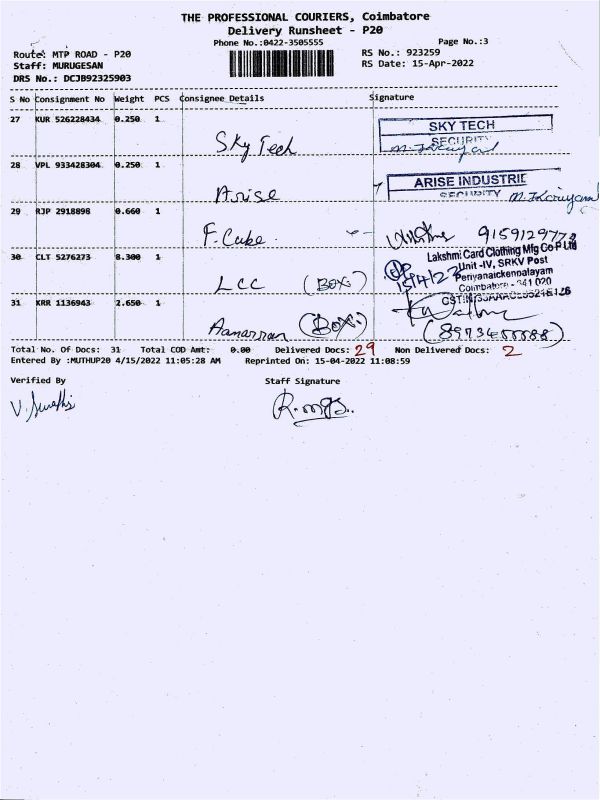 THE PROFESSIONAL COURIERS, Coimbatore
Delivery Runsheet - P20
Phone No.:0422-3505555 Page No.:3
Route: MTP ROAD - P20 RS No.: 923259
Staff: MURUGESAN RS Date: 15-Apr-2022
DRS No.: DCJB92325903
S No Consignment No Weight PCS Consignee Details Signature
27 KUR 526228434 0.250 1 Sky Tech SKY TECH
SECURITY
28 VPL 933428304 0.250 1 Arise ARISE INDUSTRIE
SECURITY
29 RJP 2918898 0.660 1 F. Cake 9159129772
30 CLT 5276273 8.300 1 LCC (BOX) Lakshmi Card Clothing Mfg Co P Ltd
Unit -IV, SRKV Post
Periyanaickenpalayam
Coimbatore - 641 020
15/4/22
31 KRR 1136943 2.650 1 (Box)
Total No. Of Docs: 31 Total COD Amt: 0.00 Delivered Docs: 29 Non Delivered Docs: 2
Entered By :MUTHUP20 4/15/2022 11:05:28 AM Reprinted On: 15-04-2022 11:08:59
Verified By Staff Signature